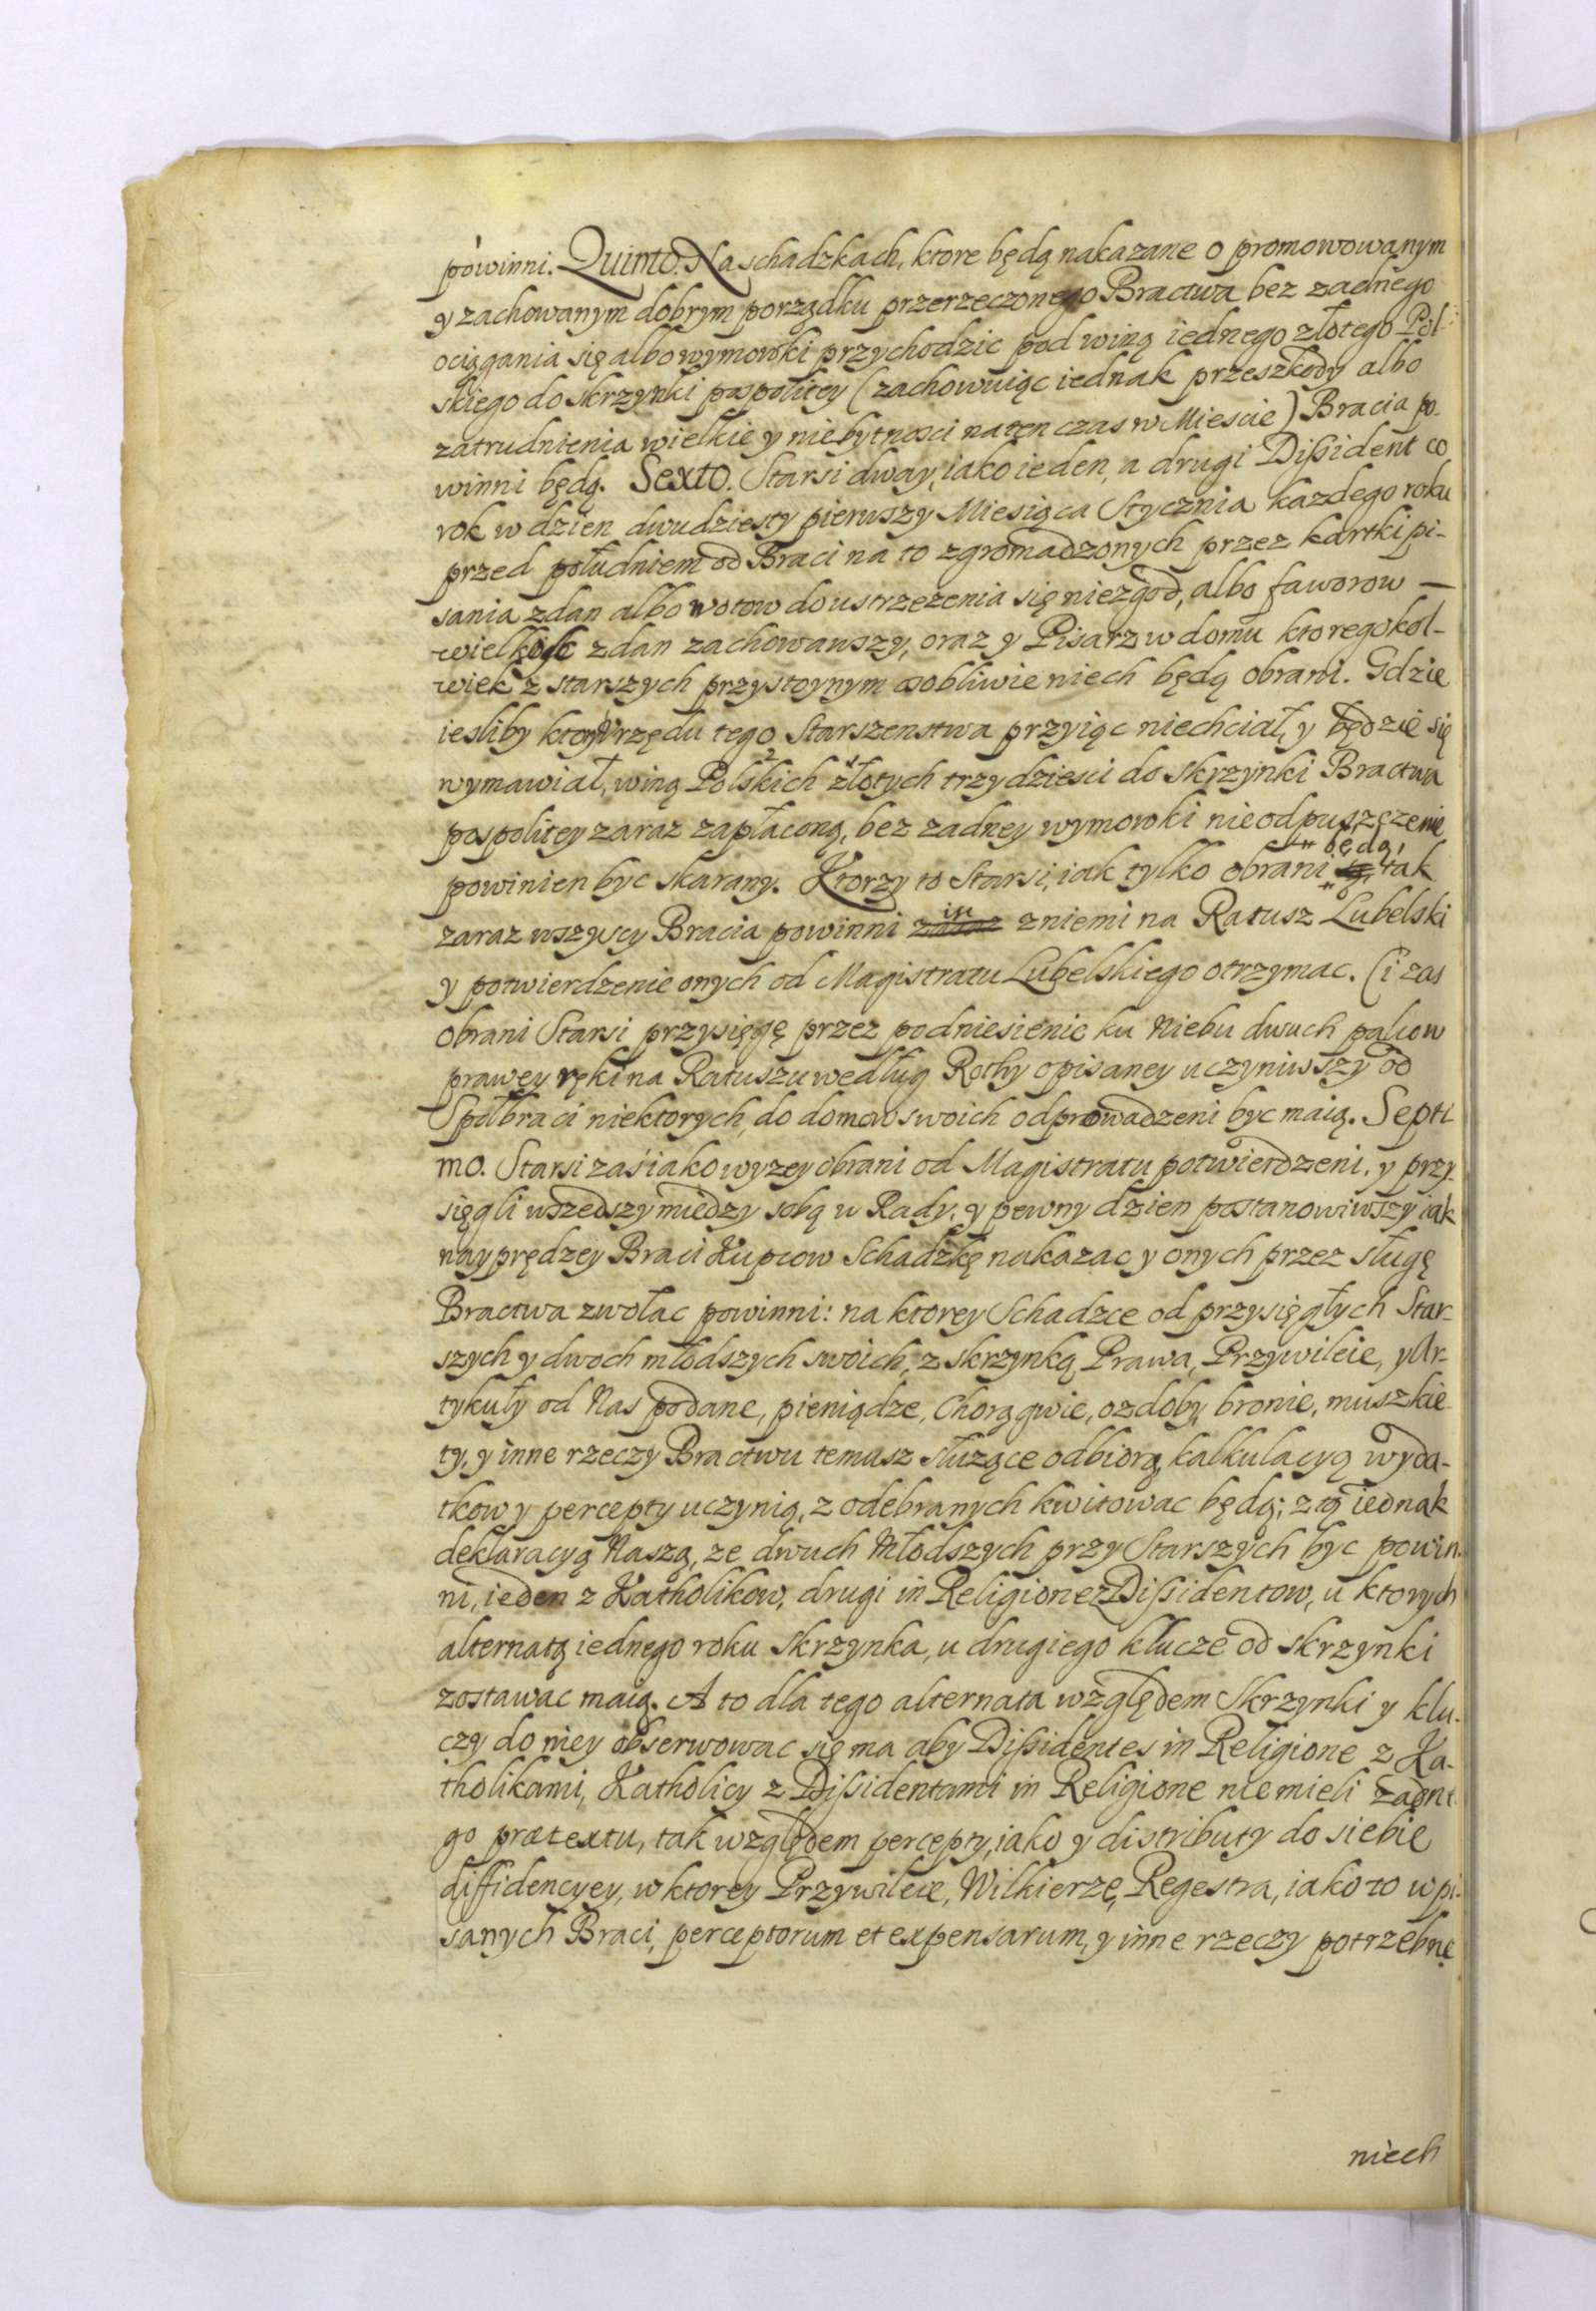 powinni. Quinto. Na schadzkach, ktore będą nakazane o promowowanym
y zachowanym dobrym porządku przerzeczonego Bractwa bez zadnego
ociągania się albo wymowki przychodzic pod winą iednego złotego Pol-
skiego do skrzynki pospolitey (zachowuiąc iednak przeszkody albo
zatrudnienia wielkie y niebytnosci na ten czas w Miescie) Bracia po-
winni będą. Sexto. Starsi dway, iako ieden, a drugi Dissident co
rok w dzien dwudziesty pierwszy Miesiąca Stycznia kazdego roku
przed południem od Braci na to zgromadzonych przez kartki pi-
sania zdan albo wotow do ustrzezenia się niezgod, albo faworow —
zdan zachowawszy, oraz y Pisarz w domu ktoregokol-
wiek z starszych przystoynym osobliwie niech będą obrani. Gdzie
iesliby ktory Urzędu tego Starszenstwa przyiąc niechciał, y będzie się
wymawiał, winą Polskich złotych trzydziesci do skrzynki Bractwa
pospolitey zaraz zapłaconą, bez zadney wymowki nieodpuszczenie
powinien byc skarany. Ktorzy to Starsi, iak tylko obrani będą, tak
zaraz wszyscy Bracia powinni isc zniemi na Ratusz Lubelski
y potwierdzenie onych od Magistratu Lubelskiego otrzymac. Ci zas
obrani Starsi przysięgę przez podniesienie ku Niebu dwuch palcow
prawey ręki na Ratuszu według Rothy opisaney uczyniwszy od
Społbraci niektorych, do domow swoich odprowadzeni byc maią. Septi
mo. Starsi zaś iako wyzey obrani od Magistratu potwierdzeni, y przy-
sięgli wszedszy miedzy sobą w Rady, y pewny dzien postanowiwszy iak
nayprędzey Braci Kupcow Schadzkę nakazac y onych przez sługę
Bractwa zwołac powinni: na ktorey Schadzce od przysięgłych Star-
szych y dwoch młodszych swoich, z skrzynką Prawa, Przywileie, y Ar-
tykuły od Nas podane, pieniądze, Chorągwie, ozdoby, bronie, muszkie-
ty, y inne rzeczy Bractwu temusz słuzące odbiorą, kalkulacyą wyda-
tkow y percepty uczynią, z odebranych kwitowac będą; z tą iednak
deklaracyą Naszą, ze dwuch Młodszych przy Starszych byc powin-
ni, ieden z Katholikow, drugi in Religione z Dissidentow, u ktorych
alternatą iednego roku skrzynka, u drugiego klucze od skrzynki
zostawac maią. A to dla tego alternata względem Skrzynki y klu-
czy do niey obserwowac się ma aby Dissidentes in Religione z Ka-
tholikami, Katholicy z Dissidentami in Religione nie mieli zadne-
go prætextu, tak względem percepty, iako y distributy do siebie
diffidencyey, w ktorey Przywileie, Wilkierze, Regestra, iako to wpi-
sanych Braci, perceptorum et expensarum, y inne rzeczy potrzebne
niech